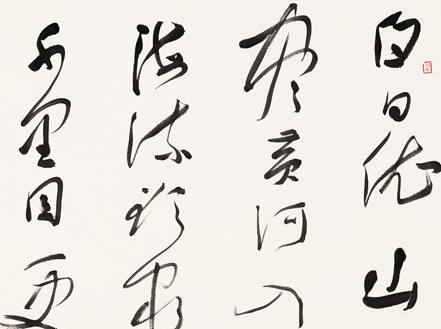 白日依山
尽黄河入
海流欲穷
千里目更